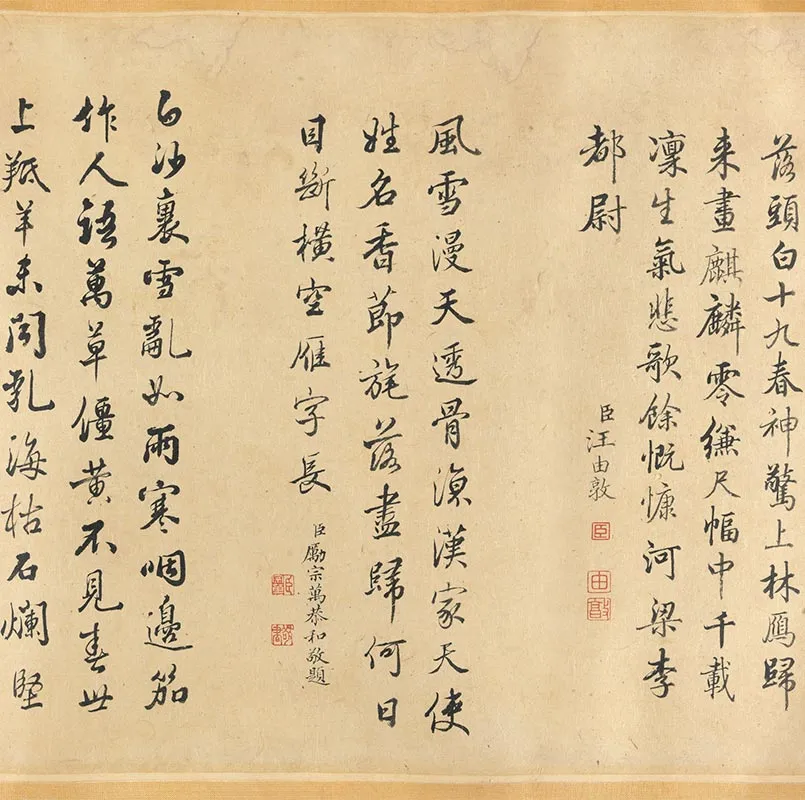 落頭白十九春神驚上林鴈歸
来畫麒麟零縑尺幅中千載
凜生氣悲歌餘慨慷河梁李
都尉
臣汪由敦
臣
由敦
風雪漫天透骨涼漢家天使
姓名香節旄落盡歸何日
目斷橫空雁字長
臣勵宗萬恭和敬題
白沙裏雪亂如雨寒咽邊笳
作人語萬草僵黃不見春丗
上羝羊未聞乳海枯石爛堅